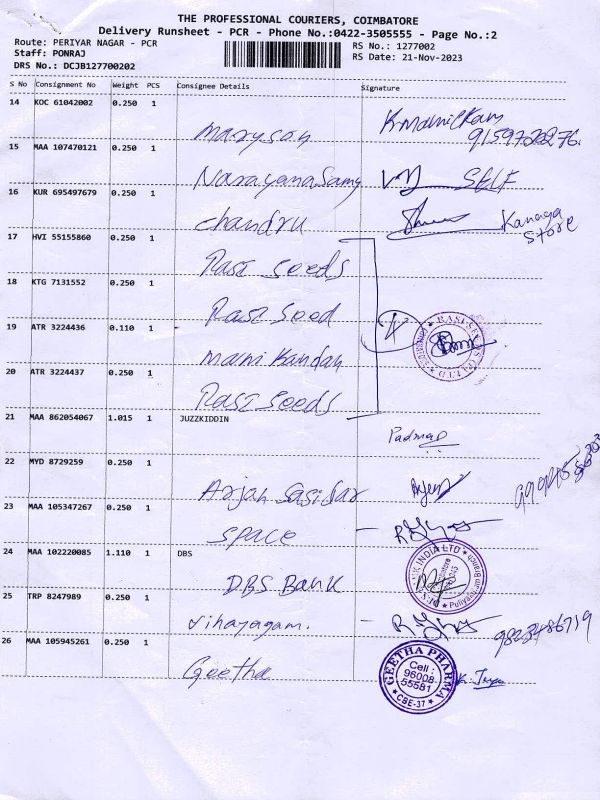 THE PROFESSIONAL COURIERS, COIMBATORE
Delivery Runsheet - PCR - Phone No.:0422-3505555 - Page No.:2
Route: PERIYAR NAGAR - PCR
RS No.: 1277002
Staff: PONRAJ
RS Date: 21-Nov-2023
DRS No.: DCJB127700202
S No Consignment No Weight PCS Consignee Details Signature
14 KOC 61042002 0.250 1
Maryson
15 MAA 107470121 0.250 1
Narayanasamy SELF
16 KUR 695497679 0.250 1
Chandru Kanaga Store
17 HVI 55155860 0.250 1
Rasi Seeds
18 KTG 7131552 0.250 1
Rasi Seed
4
RASI SEEDS (P) LTD
19 ATR 3224436 0.110 1
Mani Kandan
20 ATR 3224437 0.250 1
Rasi Seeds
21 MAA 862054067 1.015 1 JUZZKIDDIN
Padma
22 MYD 8729259 0.250 1
Arjan Sasidar
23 MAA 105347267 0.250 1
Space
24 MAA 102220085 1.110 1 DBS
DBS Bank
INDIA LTD
25 TRP 8247989 0.250 1
Vinayagam.
26 MAA 105945261 0.250 1
Geetha
GEETHA PHARMA
Cell :
96008
55581
CBE-37